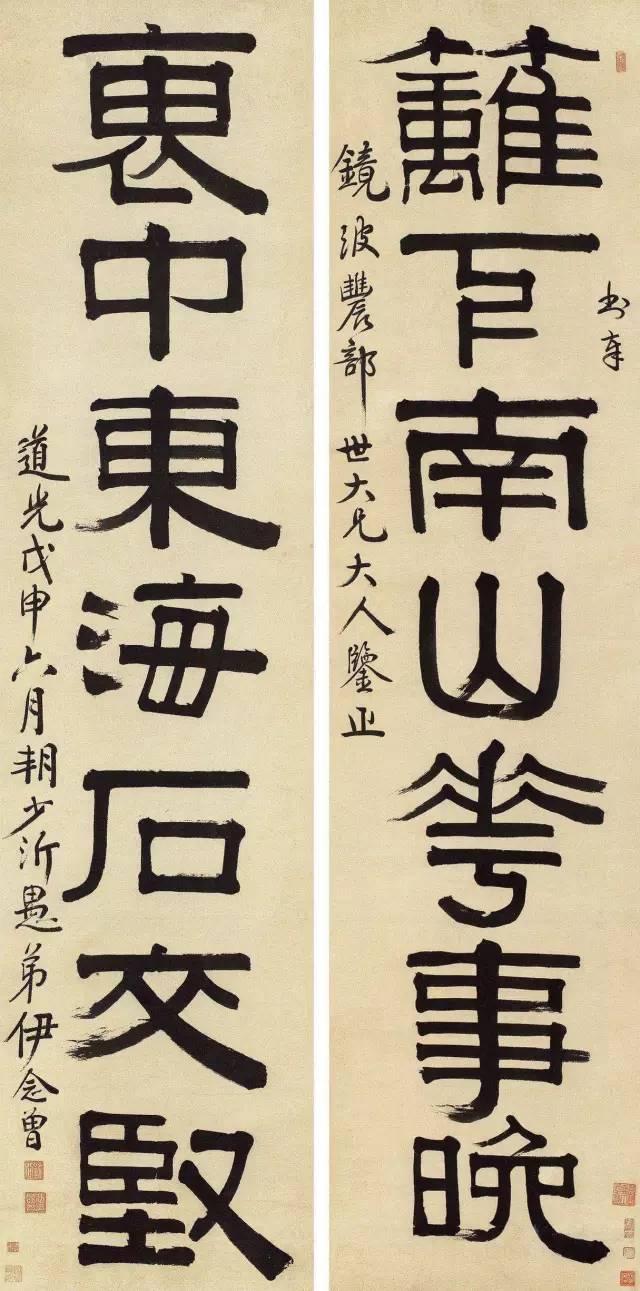 書奉
籬下南山華事晚
鏡波農部世大兄大人鑒正
袖中東海石交堅
道光戊申六月朔少沂愚弟伊念曾